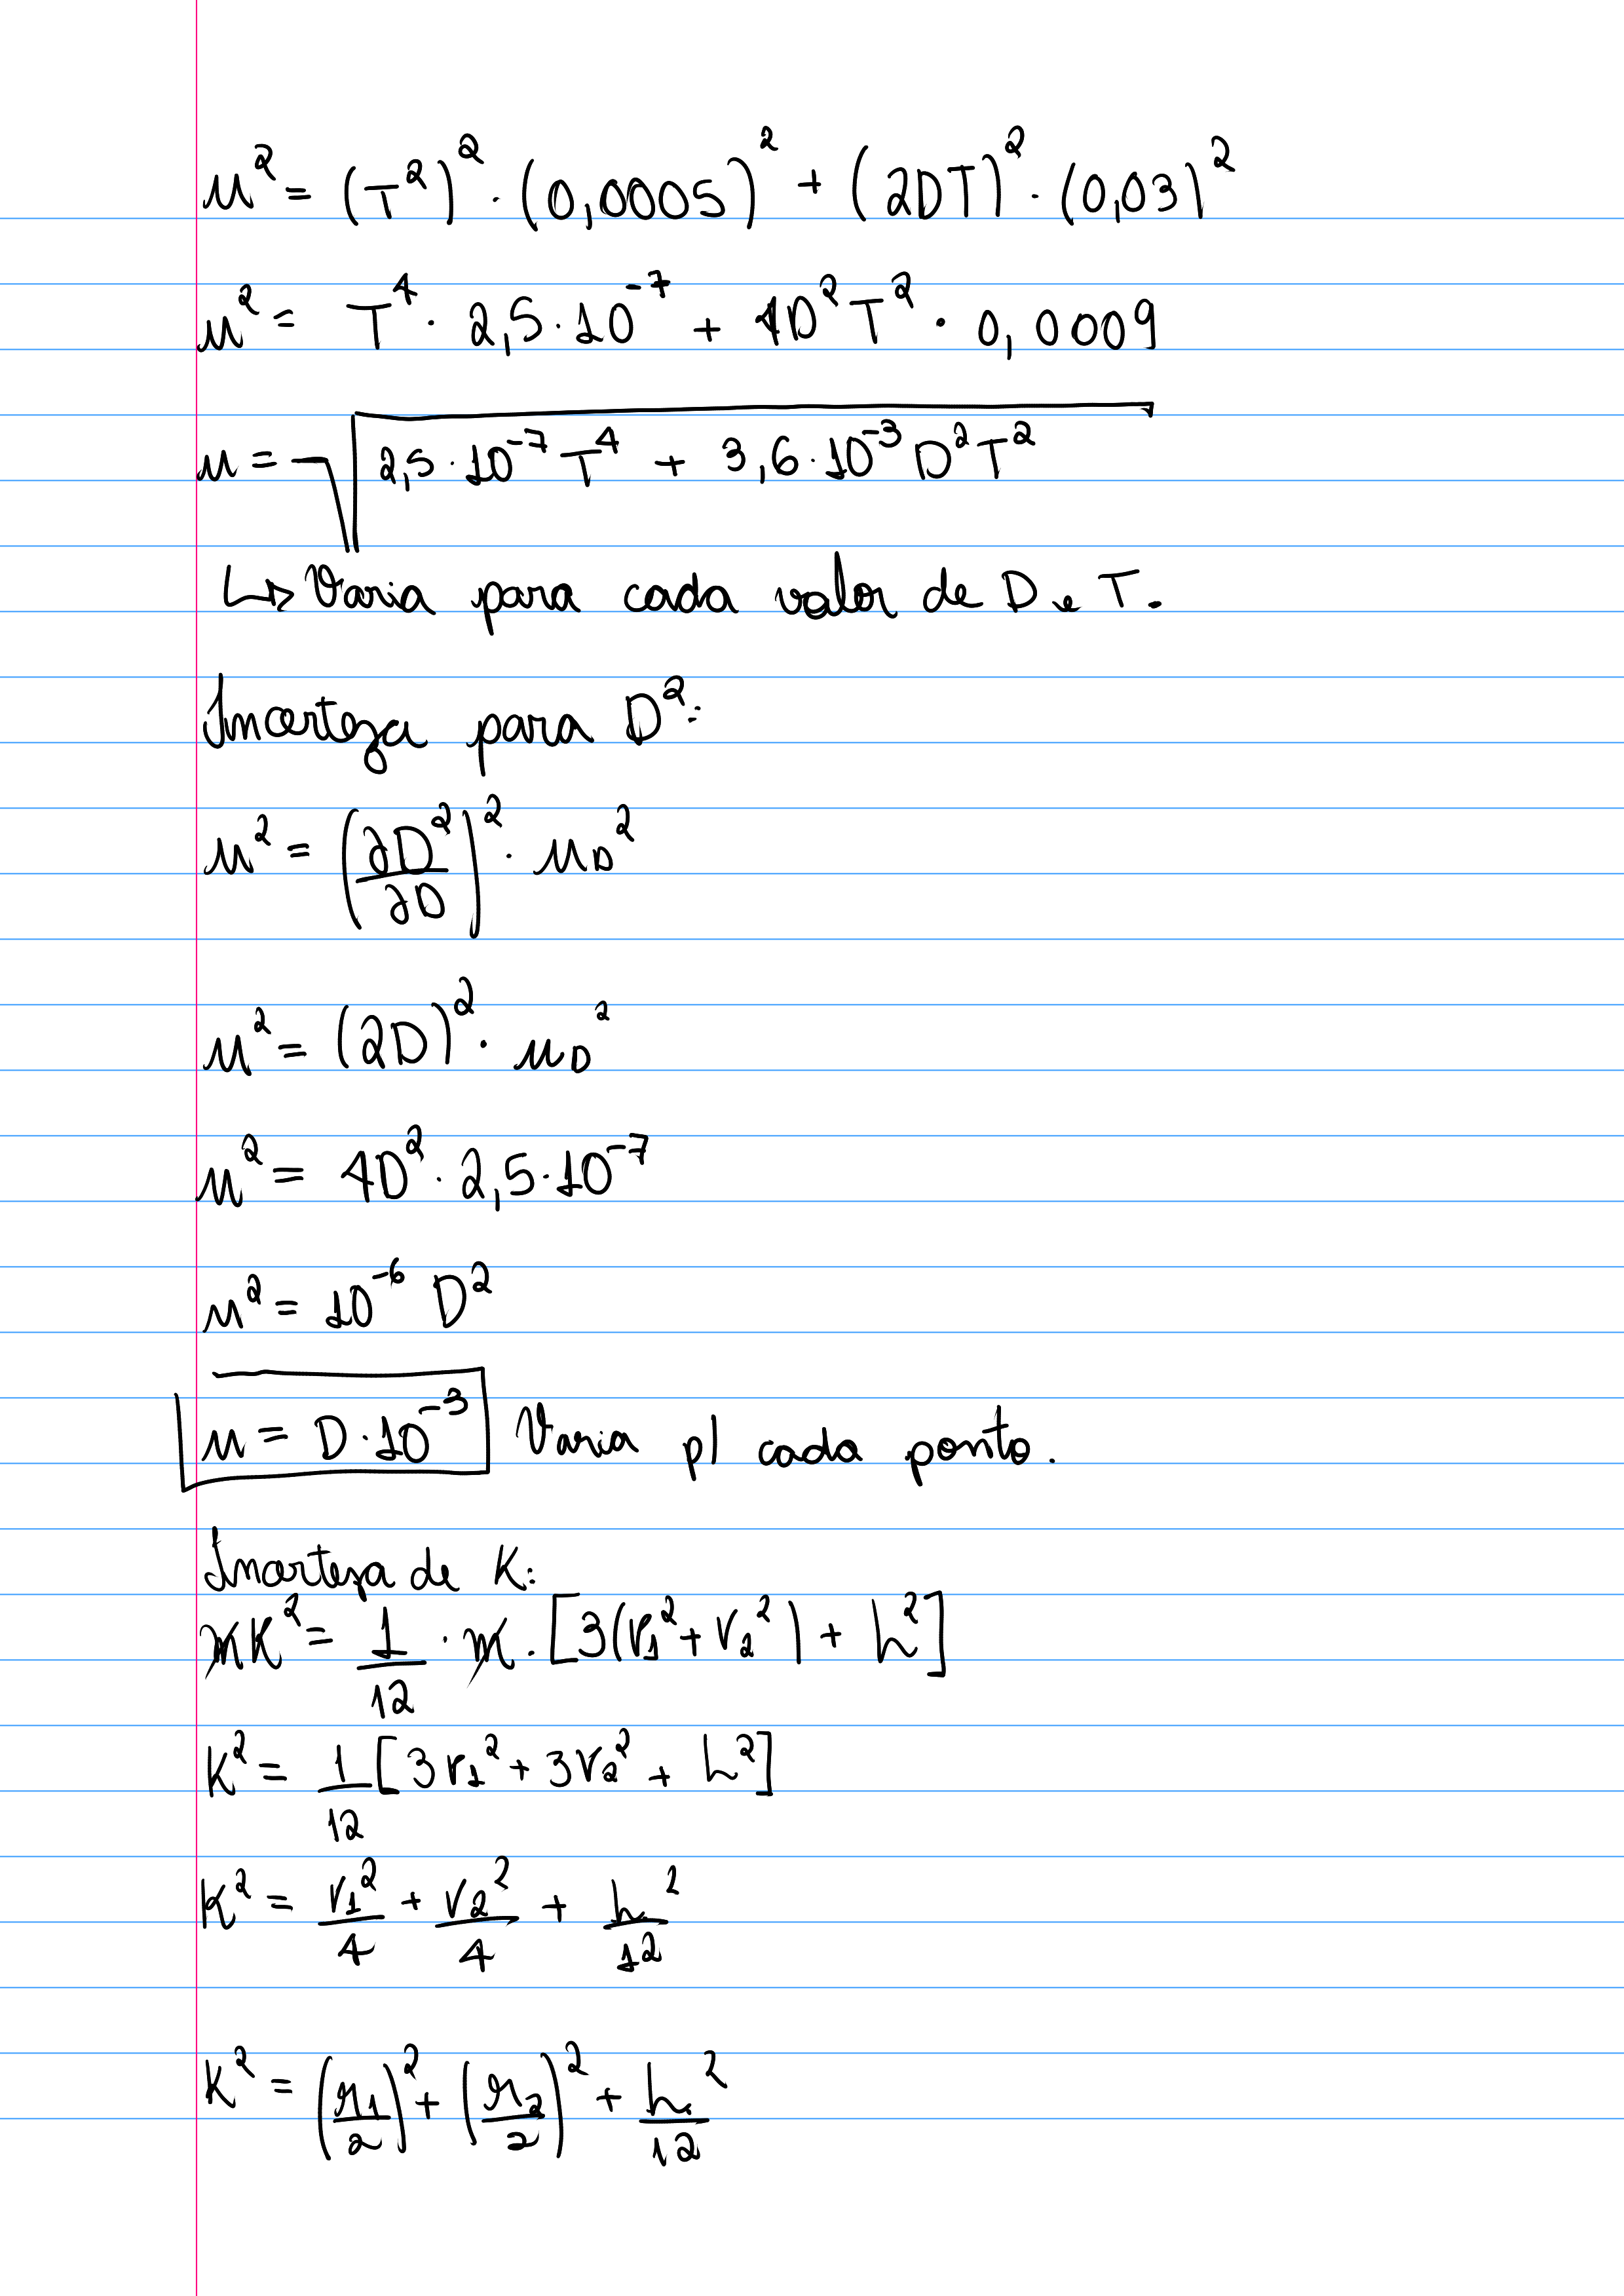 μ² = (T²)² · (0,0005)² + (2DT)² · (0,03)²
μ² = T⁴ · 2,5 · 10⁻⁷ + 4D²T² · 0,0009
μ = √(2,5 · 10⁻⁷ T⁴ + 3,6 · 10⁻³ D²T²)
↳ Varia para cada valor de D e T.
Incerteza para D²:
μ² = (∂D²/∂D)² · μ_D²
μ² = (2D)² · μ_D²
μ² = 4D² · 2,5 · 10⁻⁷
μ² = 10⁻⁶ D²
μ = D · 10⁻³ Varia p/ cada ponto.
Incerteza de K:
mK² = 1/12 · m · [3(r₁² + r₂²) + h²]
K² = 1/12 [3r₁² + 3r₂² + h²]
K² = r₁²/4 + r₂²/4 + h²/12
K² = (r₁/2)² + (r₂/2)² + h²/12